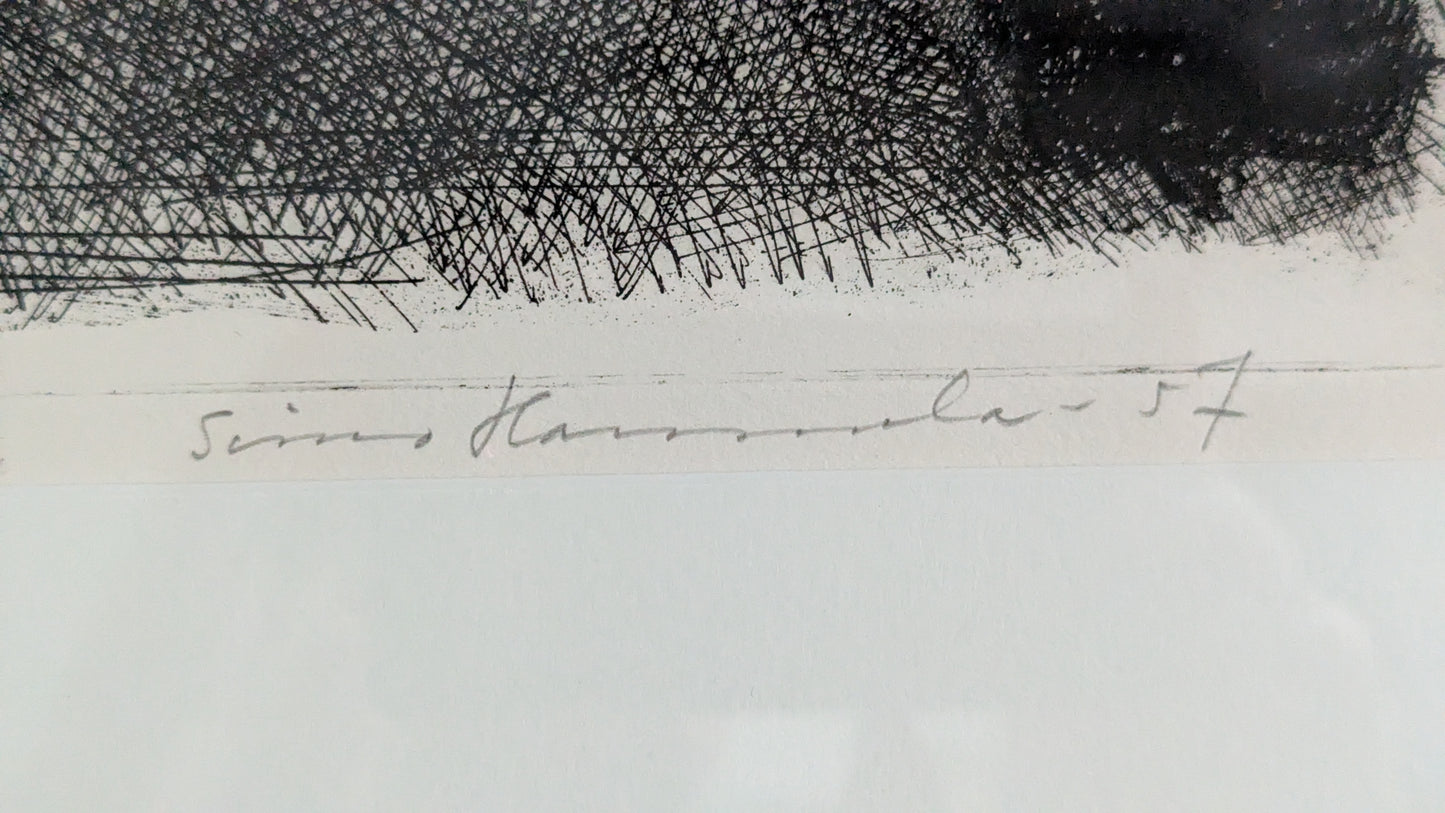 Simo Hannula - 57